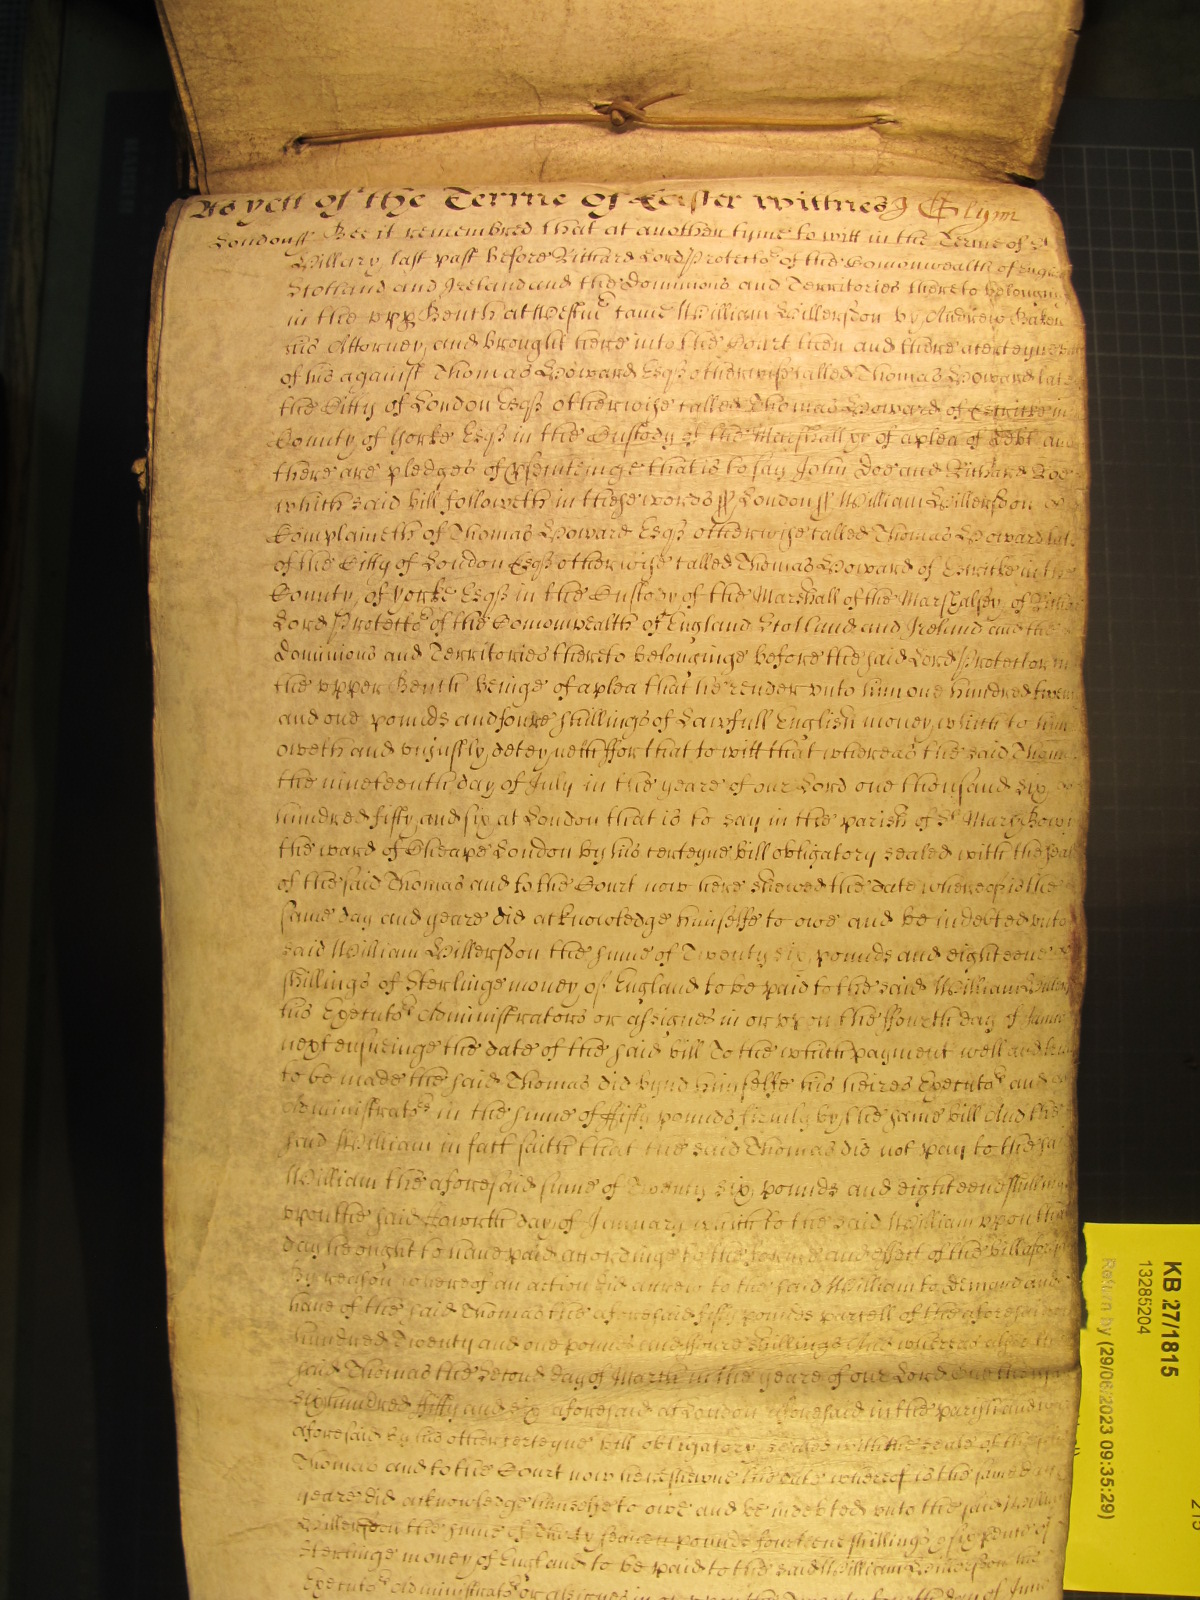 As yett of the Terme of Easter wittnes J Glynn
London ss Bee it remembred that at another tyme to witt in the Terme of St
Hillary last past before Richard Lord Protector of the Comonwealth of Engl
Scotland and Ireland and the Dominions and Territories thereto belonging
in the upp Bench at Westm came William Hillersdon by Andrew Baker
his Attorney and brought here into the Court then and there a certeyne
of his against Thomas Howard Esqr otherwise called Thomas Howard late
the Citty of London Esqr otherwise called Thomas Howard of Escricke in
County of Yorke Esqr in the Custody of the Marshall &c of a plea of Debt and
there are pledges of prosecutinge that is to say John Doe and Richard Roe
which said bill followeth in these words ss London ss William Hillersdon
Complaineth of Thomas Howard Esqr otherwise called Thomas Howard late
of the Citty of London Esqr otherwise called Thomas Howard of Escricke in the
County of Yorke Esqr in the Custody of the Marshall of the Marshalsey of Richard
Lord Protector of the Comonwealth of England Scotland and Ireland and the
Dominions and Territories thereto belonginge before the said Lord Protector in
the upper Bench beinge of a plea that he render unto him one hundred twen
and one pounds and foure shillings of Lawfull English money which to him
oweth and uniustly deteyneth ffor that to witt that whereas the said Thom
the nineteenth day of July in the yeare of our Lord one thousand six
hundred fifty and six at London that is to say in the parish of St Mary Bow
the ward of Cheape London by his certeyne bill obligatory sealed with the seal
of the said Thomas and to the Court now here shewed the date whereof is the
same day and yeare did acknowledge himselfe to owe and be indebted unto
said William Hillersdon the sume of Twenty six pounds and eighteene
shillings of Sterlinge money of England to be paid to the said William
his Executors Administrators or assignes in or upon the ffourth day of Janu
next ensueinge the date of the said bill To the which payment well and
to be made the said Thomas did bynd himselfe his heires Executors and
Administrators in the sume of ffifty pounds firmly by the same bill And the
said William in fact saith that the said Thomas did not pay to the sa
William the aforesaid sume of Twenty six pounds and eighteene shillings
upon the said fowrth day of January which to the said William upon that
day he ought to have paid accordinge to the forme and effect of the bill afores
by reason whereof an action did accrew to the said William to demand and
have of the said Thomas the aforesaid fifty pounds parcell of the aforesaid
hundred Twenty and one pounds and foure shillings And whereas alsoe the
said Thomas the second day of March in the yeare of our Lord one thousa
six hundred fifty and six aforesaid at London aforesaid in the parish and
aforesaid by his other certeyne bill obligatory sealed with the seale of the
Thomas and to the Court now here shewne the date whereof is the same
yeare did acknowledge himselfe to owe and be indebted unto the said
Hillersdon the sume of Thirty seaven pounds fourteene shillings & six pence of
Sterlinge money of England to be paid to the said William Hillersdon his
Executors Administrators or assignes in or upon the Twenty fourth day of June
KB 27/1815
13285204
Return by (29/06/2023 09:35:29)